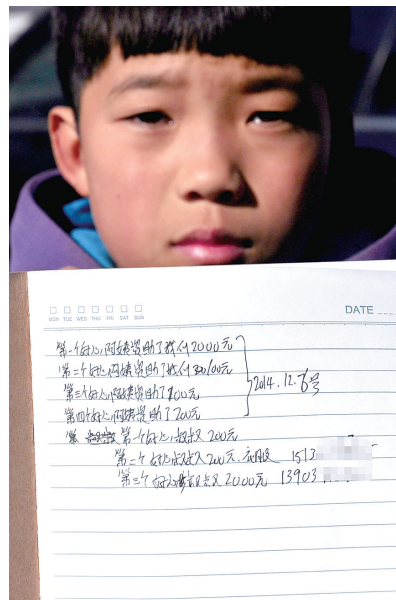 MON TUE WED THU FRI SAT SUN
DATE
第一个好心阿姨资助了我们2000元
第二个好心阿姨资助了我们 100元
第三个好心阿姨资助了 100元
第四个好心阿姨资助了200元
2014.12.6号
第 第一个好心叔叔200元
第二个好心 200元. 衣服 1513
第三个好心 叔叔2000元 13903